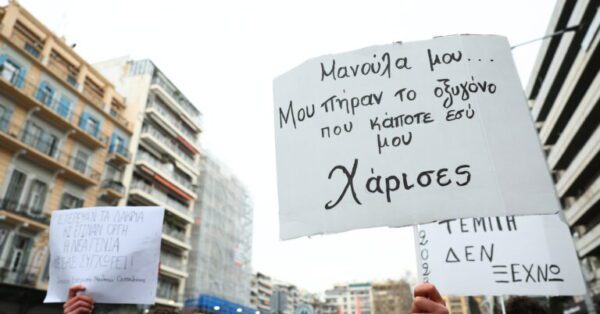 Μανούλα μου...
Μου πήραν το οξυγόνο
που κάποτε εσύ
μου
Χάρισες
ΤΕΜΠΗ
ΔΕΝ
ΞΕΧΝΩ
202
ΤΑ ΔΑΚΡΥΑ
ΟΡΓΗ
Η ΝΕΑ ΓΕΝΙΑ
ΣΥΓΧΩΡΕΙ!